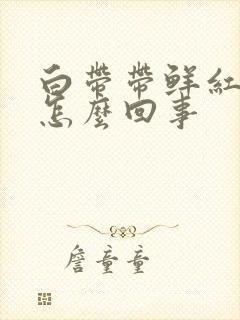 白帶帶鮮紅
怎麼回事
詹童童